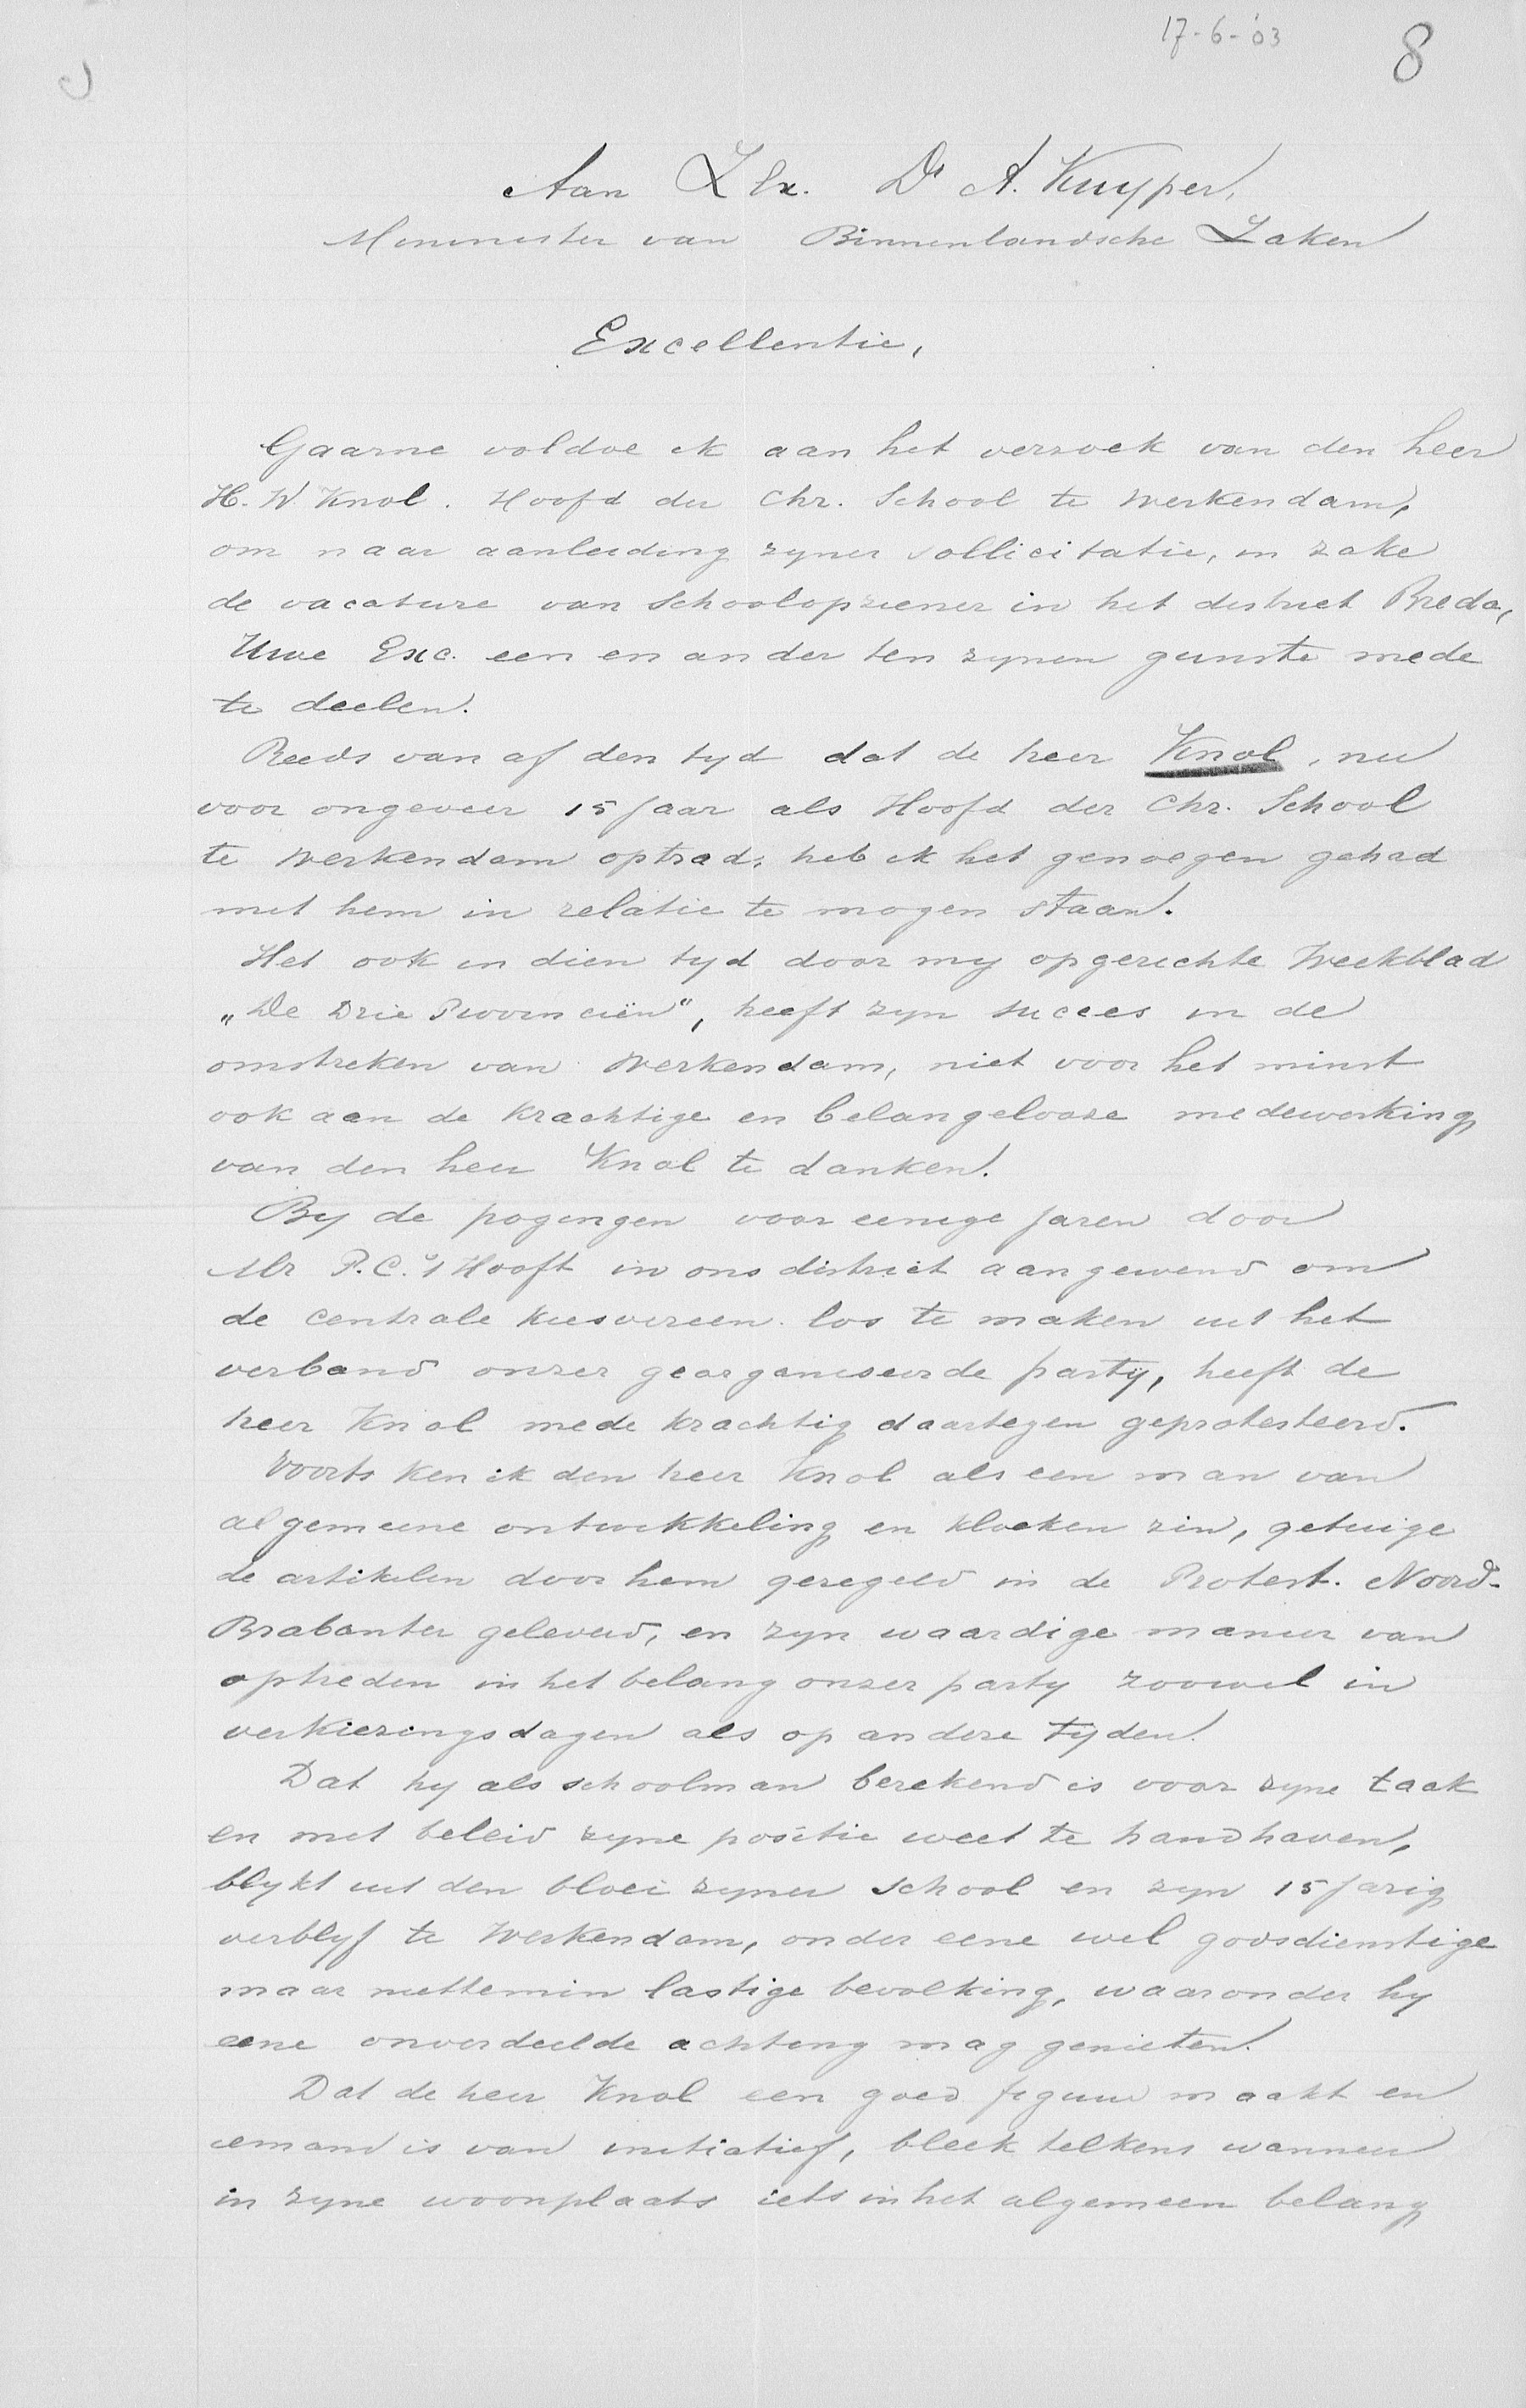 17-6-'03
8
Aan Z Ex. Dr A. Kuyper,
Minnister van Binnenlandsche Zaken
Excellentie,
Gaarne voldoe ik aan het verzoek van den heer
H. W. Knol. Hoofd der Chr. School te Werkendam,
om naar aanleiding zyner sollicitatie, in zake
de vacature van Schoolopziener in het district Breda,
Uwe Exc. een en ander ten zynen gunste mede
te deelen.
Reeds van af den tyd dat de heer Knol, nu
voor ongeveer 15 jaar als Hoofd der Chr. School
te Werkendam optrad, heb ik het genoegen gehad
met hem in relatie te mogen staan.
Het ook in dien tyd door my opgerichte Weekblad
„De Drie Provinciën", heeft zyn succes in de
omstreken van Werkendam, niet voor het minst
ook aan de krachtige en belangelooze medewerking
van den heer Knol te danken.
By de pogingen voor eenige jaren door
Mr P.C. 't Hooft in ons district aangewend om
de centrale kiesvereen. los te maken uit het
verband onzer georganiseerde party, heeft de
heer Knol mede krachtig daartegen geprotesteerd.
Voorts ken ik den heer Knol als een man van
algemeene ontwikkeling en kloeken zin, getuige
de artikelen door hem geregeld in de Protest. Noord-
Brabanter geleverd, en zyn waardige manier van
optreden in het belang onzer party zoowel in
verkiezingsdagen als op andere tyden.
Dat hy als schoolman berekend is voor zyne taak
en met beleid zyne positie weet te handhaven,
blykt uit den bloei zyner school en zyn 15 jarig
verblyf te Werkendam, onder eene wel godsdienstige
maar niettemin lastige bevolking, waaronder hy
eene onverdeelde achting mag genieten.
Dat de heer Knol een goed figuur maakt en
iemand is van initiatief, bleek telkens wanneer
in zyne woonplaats iets in het algemeen belang